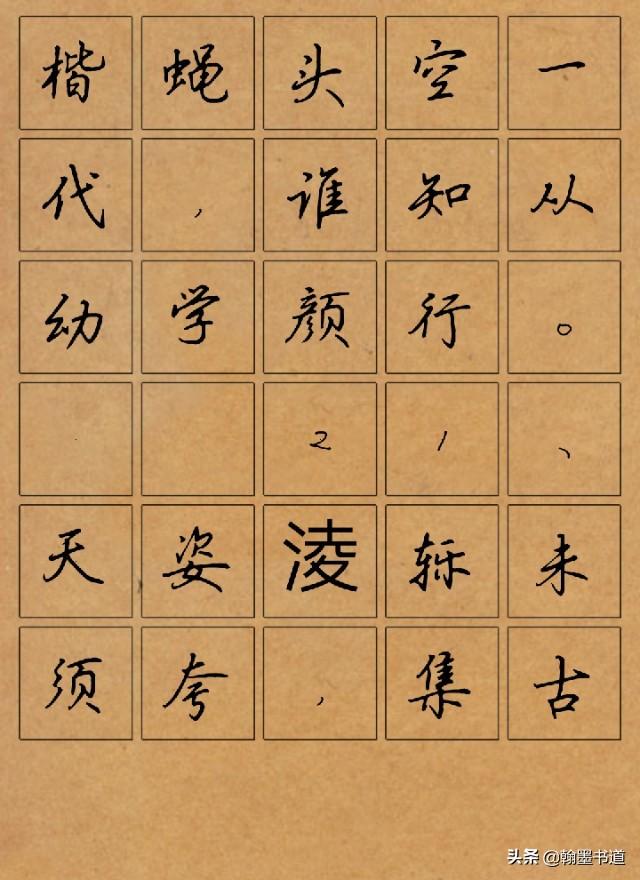 楷蝇头空一
代，谁知从
幼学颜行。
21、
天姿淩轹未
须夸，集古
头条 @翰墨书道